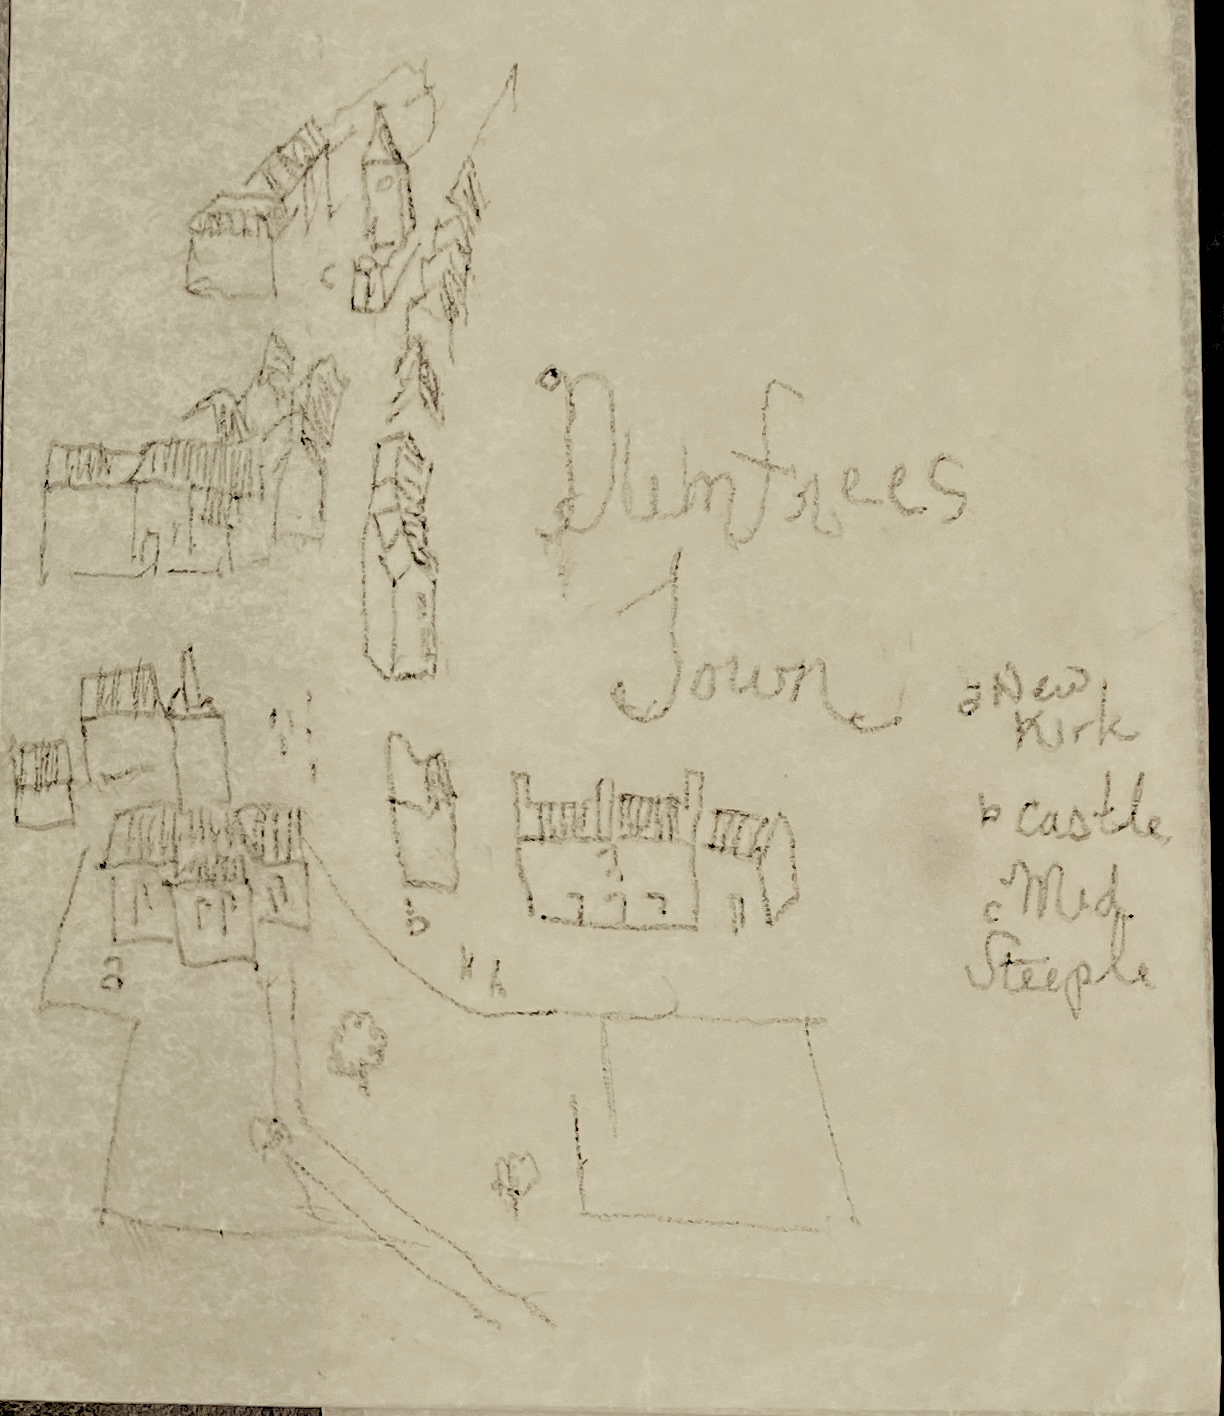 Dumfrees
Town
a New
Kirk
b castle
c Mid.
Steeple
c
b
a